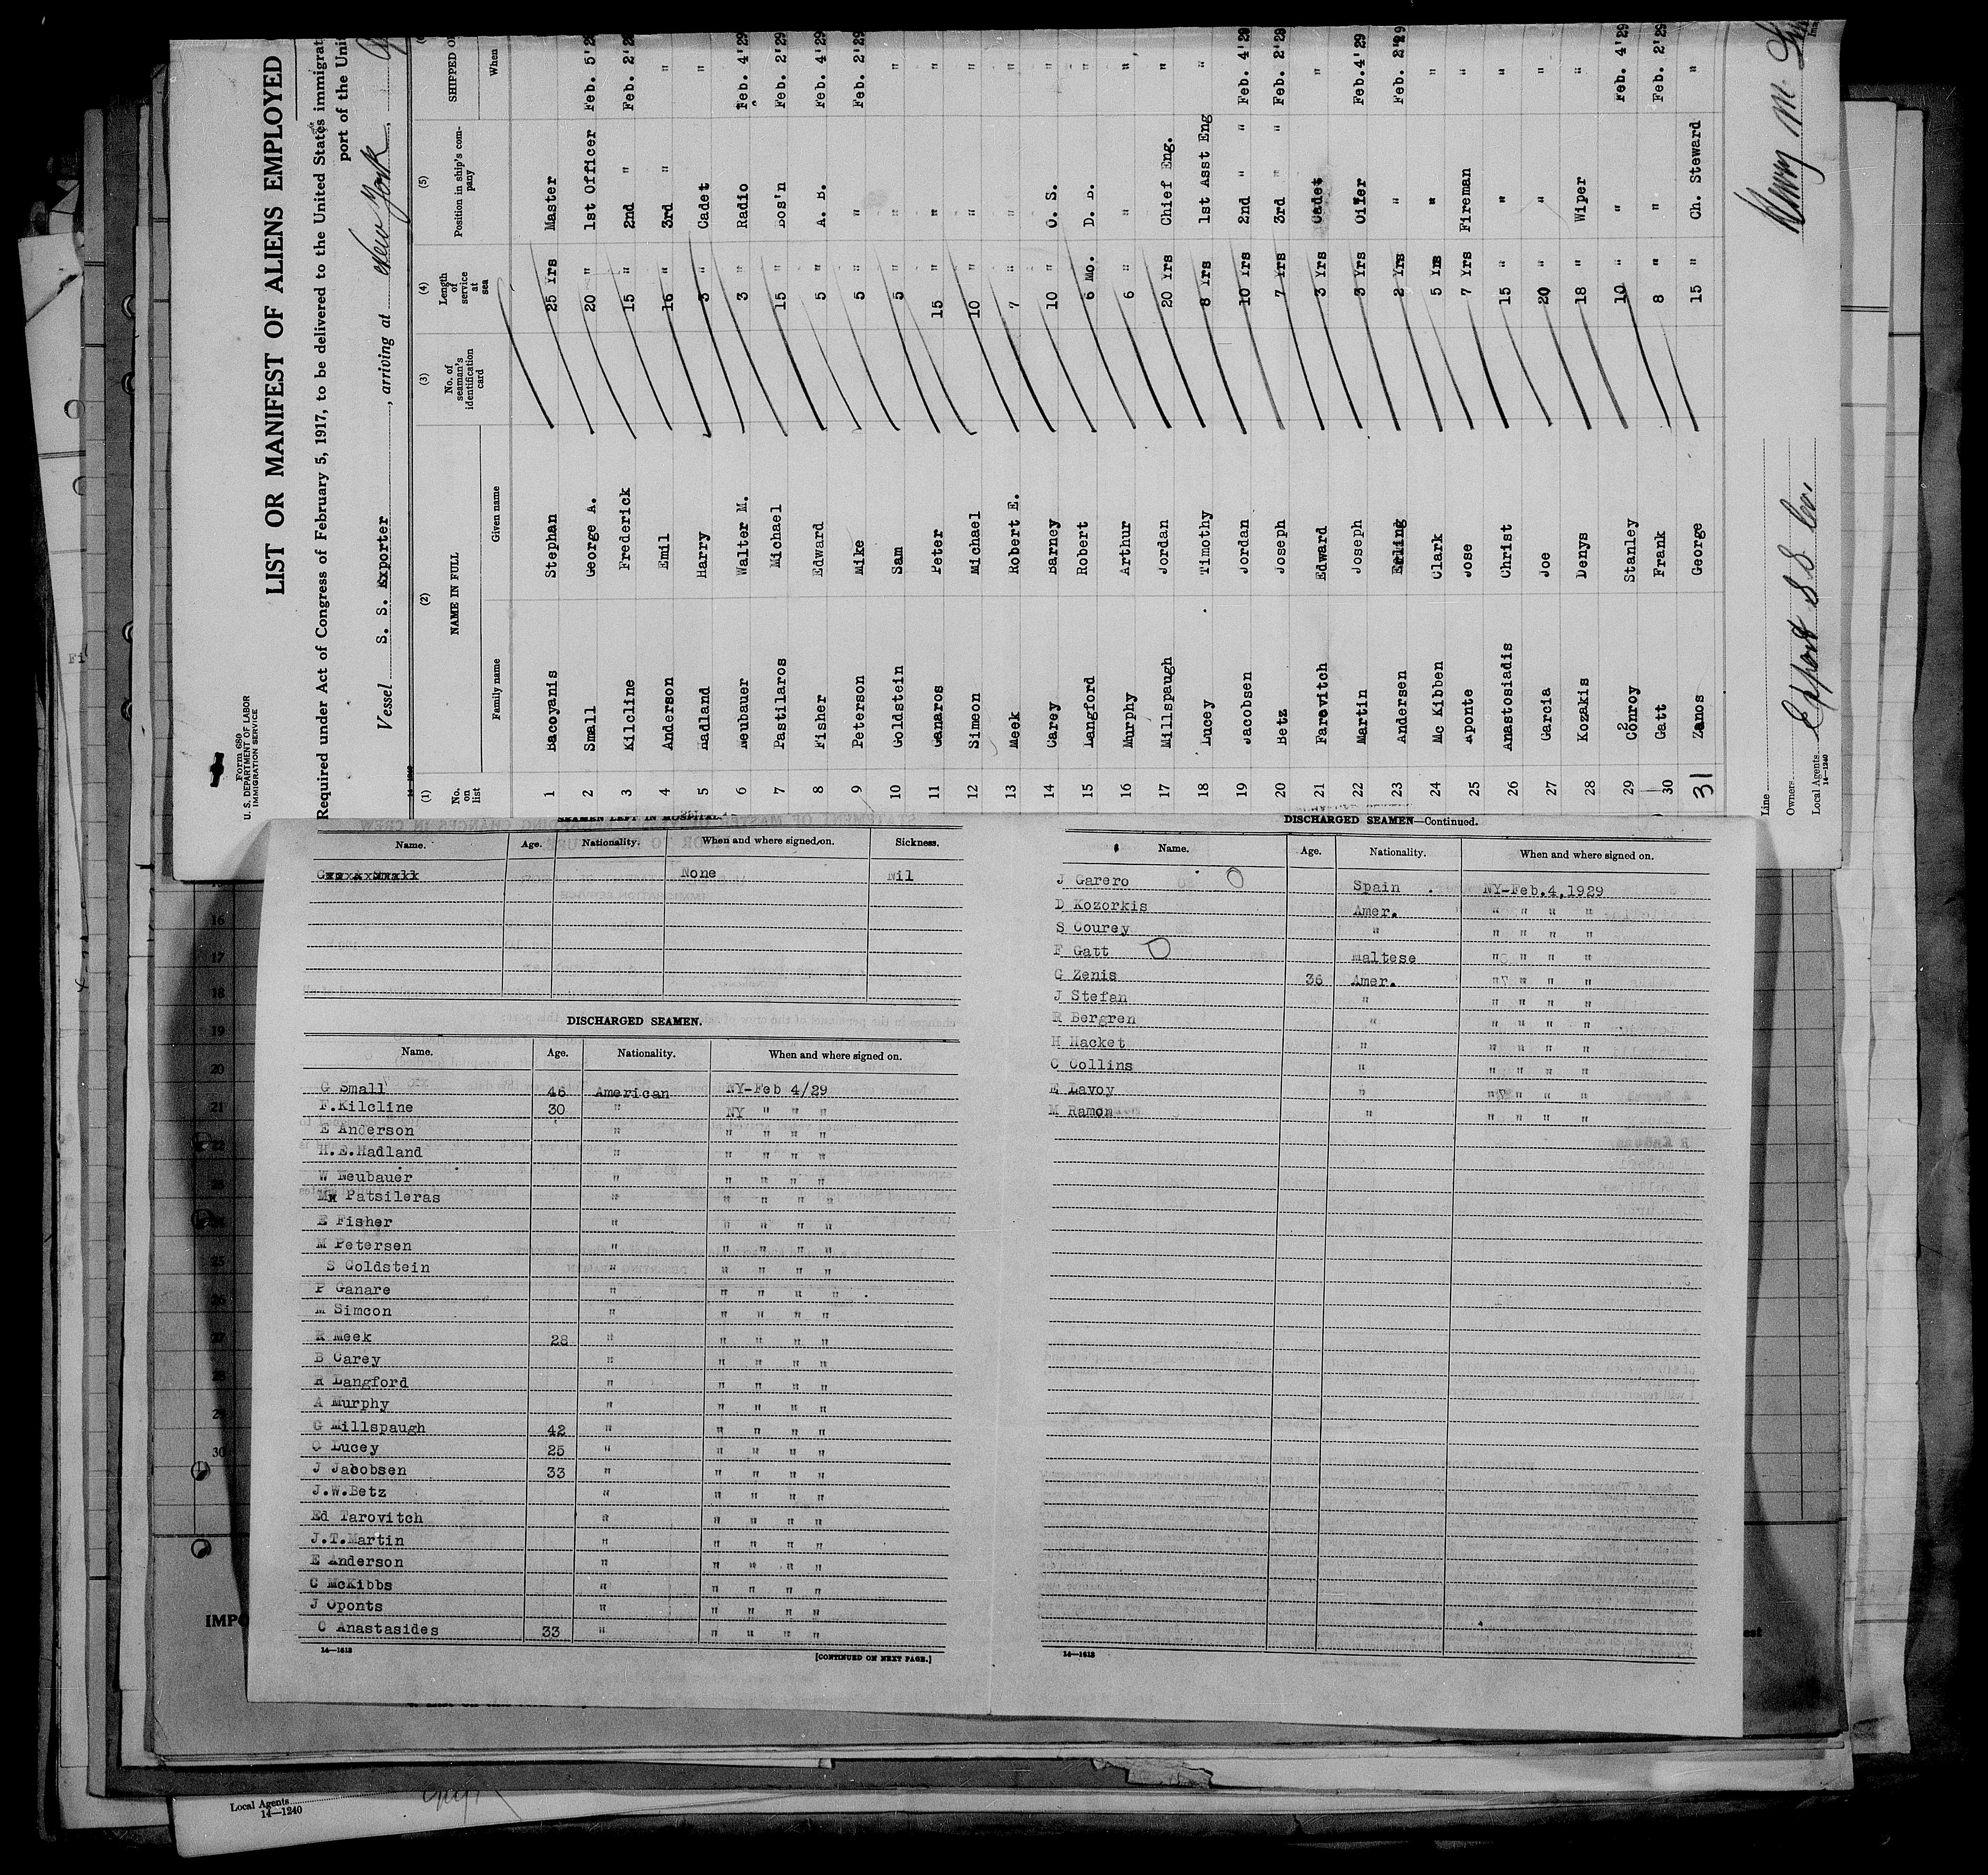 Form 680
U. S. DEPARTMENT OF LABOR
IMMIGRATION SERVICE
LIST OR MANIFEST OF ALIENS EMPLOYED
Required under Act of Congress of February 5, 1917, to be delivered to the United States immigrat
port of the Unit
Vessel S. S. Exporter, arriving at New York,
(1) (2) (3) (4) (5)
No. on list NAME IN FULL No. of seaman's identification card Length of service at sea Position in ship's company SHIPPED O
Family name Given name When
1 Bacoyanis Stephan 25 Yrs Master
2 Small George A. 20 " 1st Officer Feb. 5'29
3 Kilcline Frederick 15 " 2nd " Feb. 2'29
4 Anderson Emil 16 " 3rd " "
5 Hadland Harry 3 " Cadet "
6 Neubauer Walter M. 3 " Radio Feb. 4'29
7 Pastilaros Michael 15 " Bos'n Feb. 2'29
8 Fisher Edward 5 " A. B. Feb. 4'29
9 Peterson Mike 5 " " Feb. 2'29
10 Goldstein Sam 5 " " "
11 Ganaros Peter 15 " " "
12 Simeon Michael 10 " " "
13 Meek Robert E. 7 " " "
14 Carey Barney 10 " O. S. "
15 Langford Robert 6 Mo. D. B. "
16 Murphy Arthur 6 " " "
17 Millspaugh Jordan 20 Yrs Chief Eng. "
18 Lucey Timothy 8 Yrs 1st Asst Eng "
19 Jacobsen Jordan 10 Yrs 2nd " " Feb. 4'29
20 Betz Joseph 7 Yrs 3rd " " Feb. 2'29
21 Farovitch Edward 3 Yrs Cadet "
22 Martin Joseph 3 Yrs Oiler Feb.4'29
23 Andersen Erling 2 Yrs " Feb. 2'29
24 Mc Kibben Clark 5 Yrs " "
25 Aponte Jose 7 Yrs Fireman "
26 Anastosiadis Christ 15 " " "
27 Garcia Joe 20 " " "
28 Kozakis Denys 18 " Wiper "
29 Conroy Stanley 10 " " Feb. 4'29
30 Gatt Frank 8 " " Feb. 2'29
31 Zanos George 15 " Ch. Steward "
Line
Owners Export SS Co.
Local Agents
14—1240
Henry M.
SEAMEN LEFT IN HOSPITAL.
Name. Age. Nationality. When and where signed on. Sickness.
None Nil
DISCHARGED SEAMEN.
Name. Age. Nationality. When and where signed on.
G Small 46 American NY-Feb 4/29
F.Kilcline 30 " NY " " "
E Anderson " " " " "
H.E.Hadland " " " " "
W Neubauer " " " " "
Mw Patsileras " " " " "
E Fisher " " " " "
M Petersen " " " " "
S Goldstein " " " " "
P Ganare " " " " "
M Simcon " " " " "
R Meek 28 " " " " "
B Carey " " " " "
R Langford " " " " "
A Murphy " " " " "
G Millspaugh 42 " " " " "
O Lucey 25 " " " " "
J Jacobsen 33 " " " " "
J.W.Betz " " " " "
Ed Tarovitch " " " " "
J.T.Martin " " " " "
E Anderson " " " " "
C McKibbs " " " " "
J Oponts " " " " "
C Anastasides 33 " " " " "
14—1618
[CONTINUED ON NEXT PAGE.]
DISCHARGED SEAMEN—Continued.
Name. Age. Nationality. When and where signed on.
J Garero Spain NY-Feb.4,1929
D Kozorkis Amer. " " " "
S Courey " " " " "
F Gatt Maltese " " " "
G Zenis 36 Amer. " " " "
J Stefan " " " " "
R Bergren " " " " "
H Hacket " " " " "
C Collins " " " " "
E Lavoy " " " " "
M Ramon " " " " "
14—1618
16
17
18
19
20
21
22
24
25
26
27
28
29
30
IMPO
Local Agents
14—1240